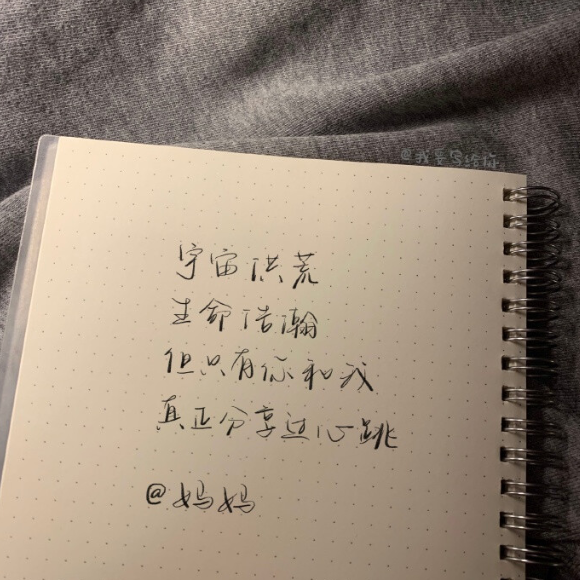 @我要写给你
宇宙洪荒
生命浩瀚
但只有你和我
真正分享过心跳
@妈妈